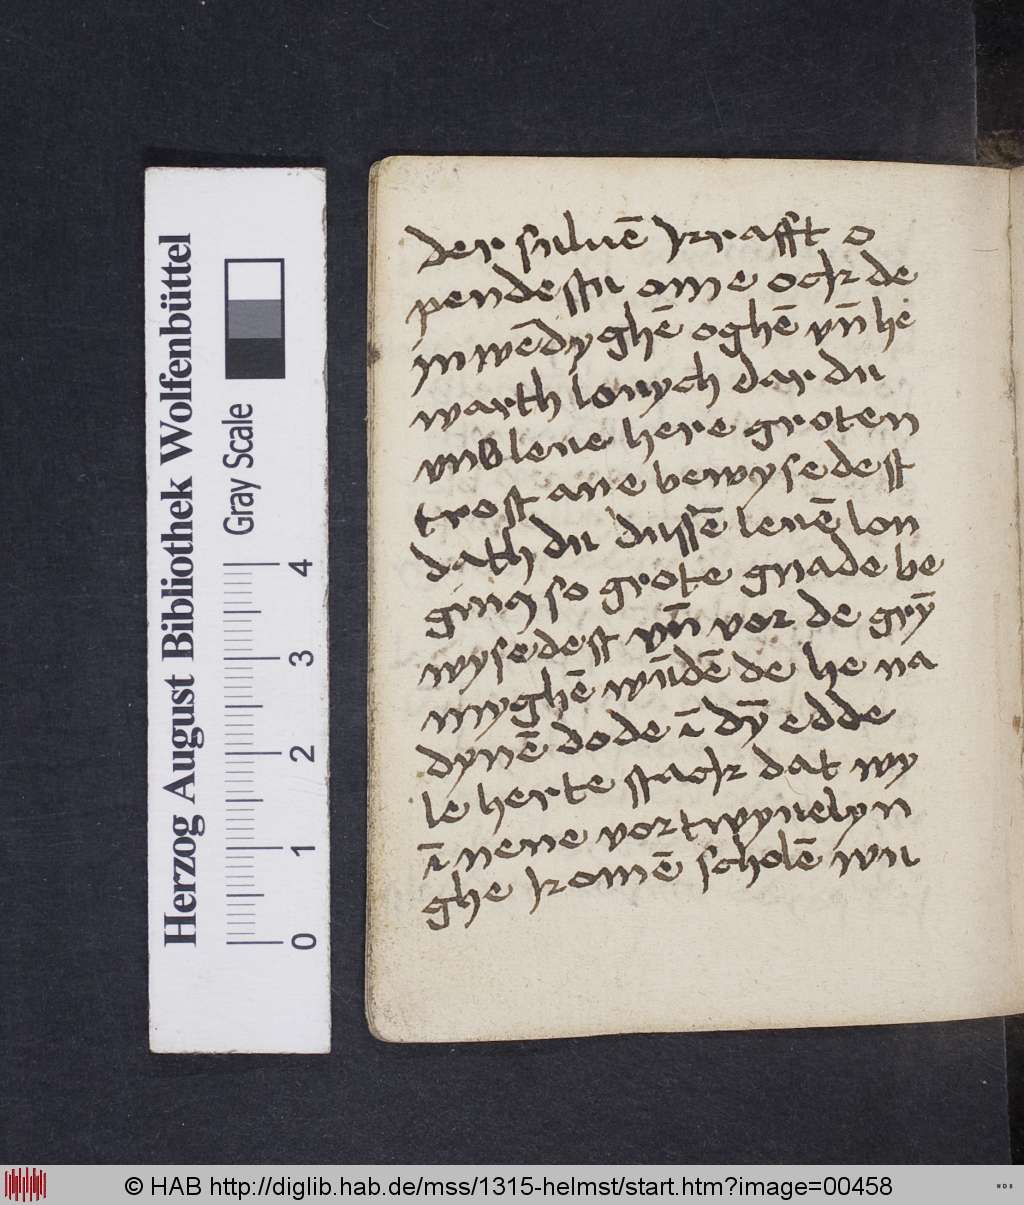 der suluē krafft o
pendestu ome ock de
inwēdyghē oghē vn̄ he
warth louych dar du
vns leue here groten
trost ane bewysedest
dath du dussē leuē lon
ginꝯ so grote gnade be
wysedest vn̄ vor de grȳ
myghē wūdē de he na
dynē dode ī dȳ edde
le herte stack dat wy
ī nene vortwyuelyn
ghe komē scholē wu
Herzog August Bibliothek Wolfenbüttel
Gray Scale
0 1 2 3 4
© HAB http://diglib.hab.de/mss/1315-helmst/start.htm?image=00458